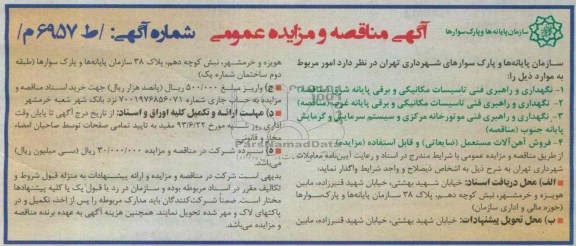 سازمان پایانه‌ها و پارک سوارها
آگهی مناقصه و مزایده عمومی
شماره آگهی: /ط ۶۹۵۷/م
سازمان پایانه‌ها و پارک سوارهای شهرداری تهران در نظر دارد امور مربوط
به موارد ذیل را:
۱- نگهداری و راهبری فنی تاسیسات مکانیکی و برقی پایانه شرق (مناقصه)
۲- نگهداری و راهبری فنی تاسیسات مکانیکی و برقی پایانه غرب (مناقصه)
۳- نگهداری و راهبری فنی موتورخانه مرکزی و سیستم سرمایش و گرمایش
پایانه جنوب (مناقصه)
۴- فروش آهن آلات مستعمل (ضایعاتی) و قابل استفاده (مزایده)
از طریق مناقصه و مزایده عمومی با شرایط مندرج در اسناد و رعایت آیین‌نامه معاملات
شهرداری تهران به شرح ذیل به اشخاص ذیصلاح و واجد شرایط واگذار نماید:
الف) محل دریافت اسناد: خیابان شهید بهشتی، خیابان شهید قنبرزاده، مابین
هویزه و خرمشهر، نبش کوچه دهم، پلاک ۳۸ سازمان پایانه‌ها و پارک‌سوارها
(حوزه مالی و اداری سازمان)
ب) محل تحویل پیشنهادات: خیابان شهید بهشتی، خیابان شهید قنبرزاده، مابین
هویزه و خرمشهر، نبش کوچه دهم، پلاک ۳۸ سازمان پایانه‌ها و پارک سوارها (طبقه
دوم ساختمان شماره یک)
ج) واریز مبلغ ۵۰۰/۰۰۰ ریال (پانصد هزار ریال) جهت خرید اسناد مناقصه و
مزایده به حساب جاری شماره ۷۰۰۱۹۷۶۸۵۶۰۷۱ نزد بانک شهر شعبه خرمشهر
د) مهلت ارائه و تکمیل کلیه اوراق و اسناد: از تاریخ درج آگهی تا پایان وقت
اداری روز شنبه مورخ ۹۳/۶/۲۲ مقید به تایید تمامی صفحات توسط صاحبان امضاء
مجاز و قانونی
ه) سپرده شرکت در مناقصه و مزایده ۳۰/۰۰۰/۰۰۰ ریال (سی میلیون ریال)
می‌باشد.
بدیهی است شرکت در مناقصه و مزایده و ارائه پیشنهادات به منزله قبول شروط و
تکالیف مقرر در اسناد مربوطه بوده و سازمان در رد یا قبول یک یا کلیه پیشنهادها
مختار است. ضمناً شرکت‌کنندگان باید مدارک مربوطه را پس از اخذ، تکمیل و در
پاکتهای لاک و مهر شده تحویل نمایند. همچنین هزینه آگهی به عهده برنده مناقصه
و مزایده می‌باشد.
ParsNamadData